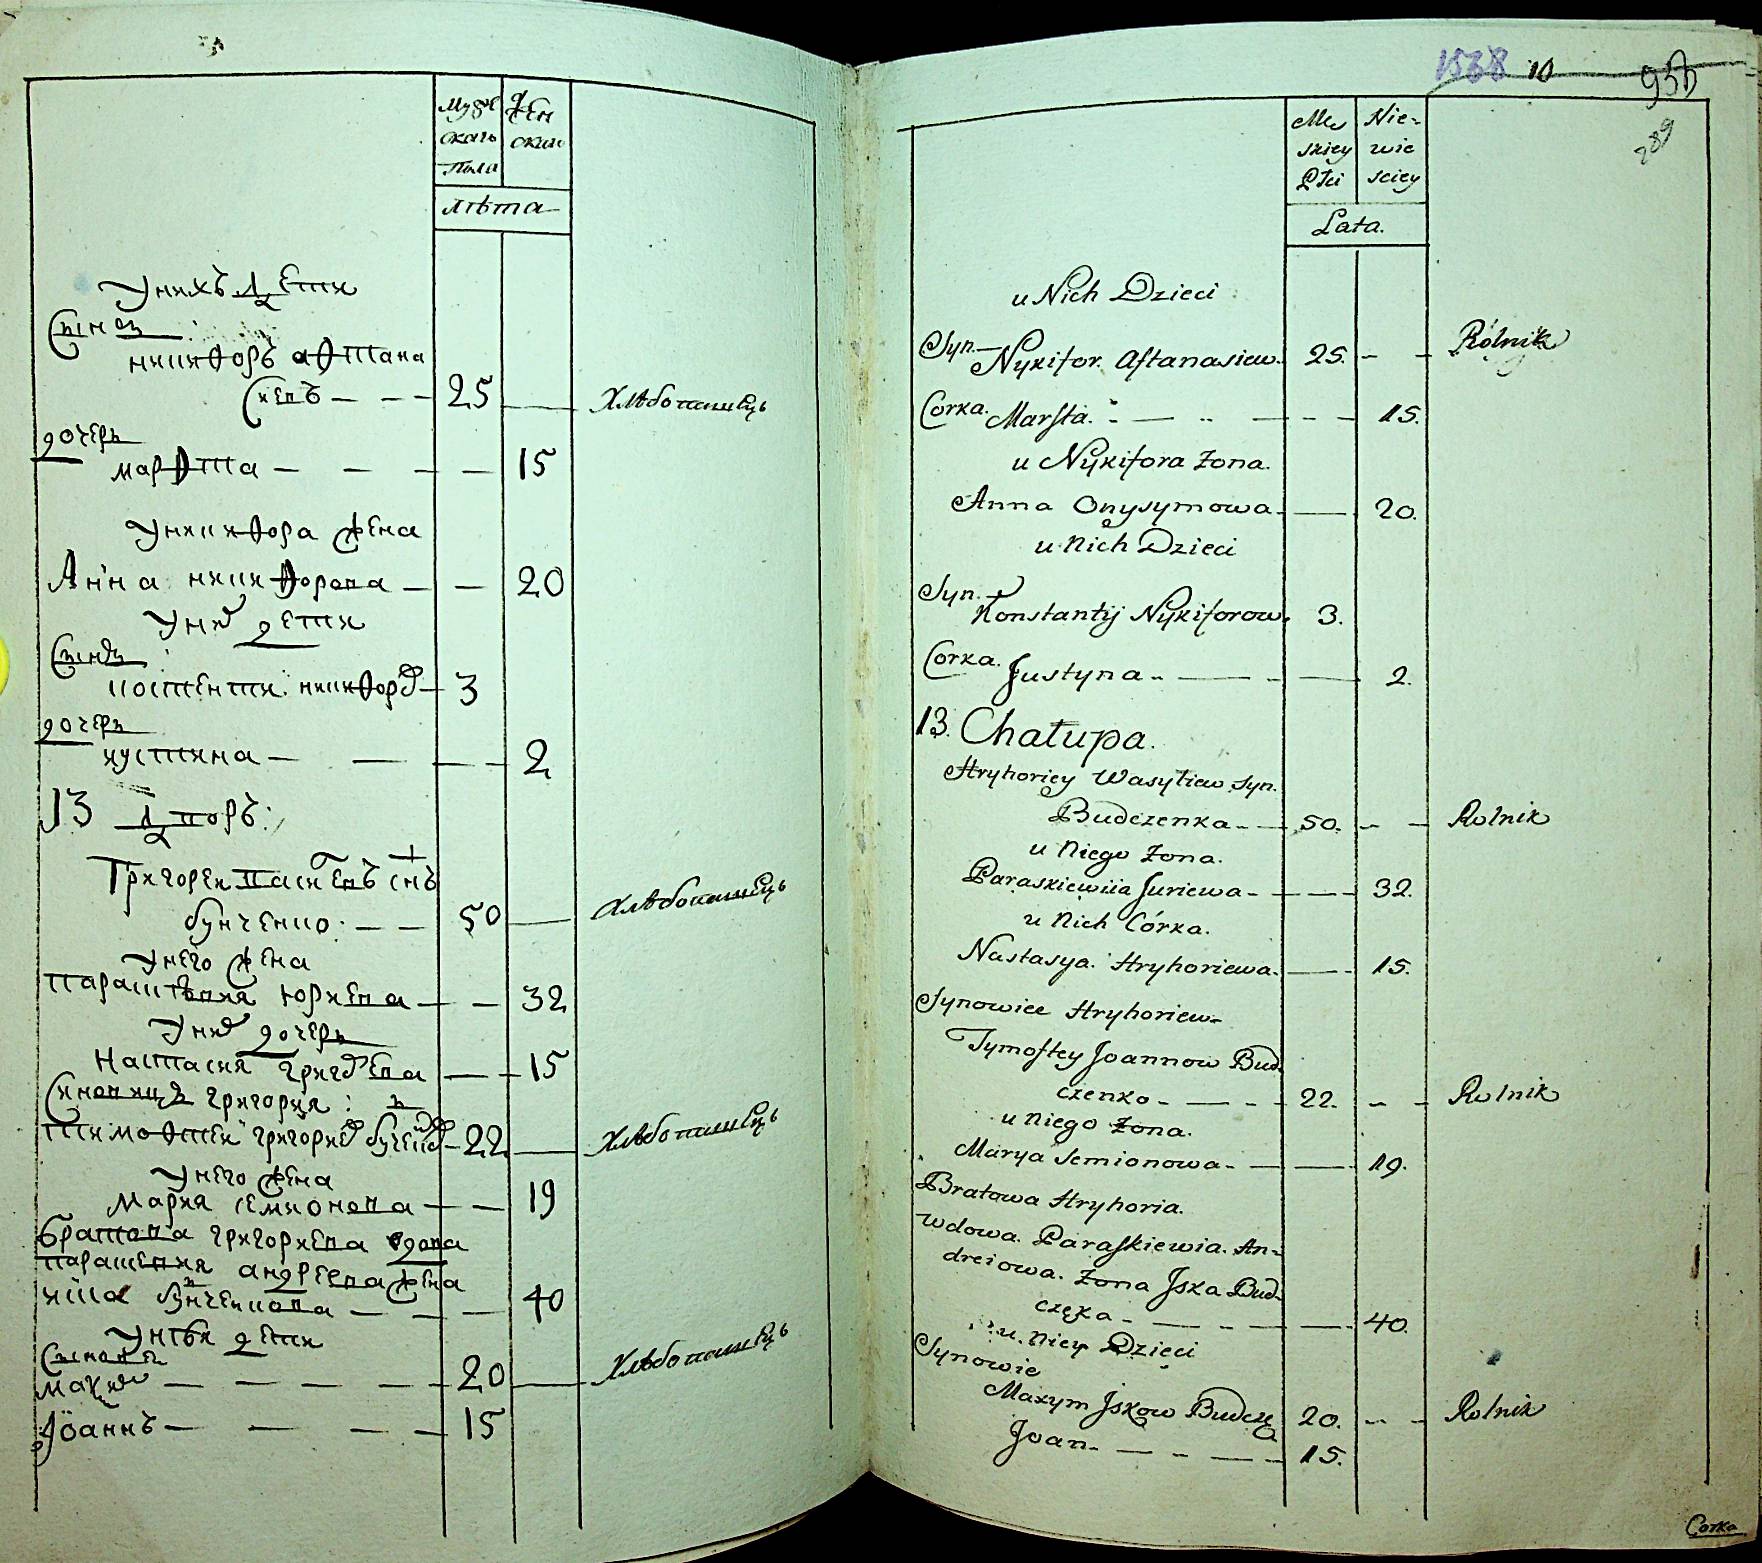 Мужескагѡ пола
Женскии
лѣта
Унихъ Дети
Сынъ
никифоръ афтана
сиевъ 25 Хлѣбопашецъ
дочерь
марфта 15
Уникифора жена
Анна никифорова 20
Уних дети
Сынъ
костенти никифоров 3
дочерь
иустина 2
13 Дворъ:
Григореи василевъ снъ
бунченко 50 Хлѣбопашецъ
Унего жена
парасковия юриева 32
Уних дочерь
Настасия григориева 15
Синовицъ григория
тимофтеи григориев бученко 22 Хлѣбопашецъ
Унего жена
Мария семионова 19
братова григориева вдова
парасковия андреева жена
иска бунченкова 40
Унеѣи дети
Сынове
Максим 20 Хлѣбопашецъ
Иоаннъ 15
1538 10 933
289
Mę skiey Płci
Nie= wie sciey
Lata.
u Nich Dzieci
Syn. Nykifor. Aftanasiew. 25. Rólnik
Corka. Marfta. 15.
u Nykifora Zona.
Anna Onysymowa 20.
u Nich Dzieci
Syn. Konstantij Nykiforow. 3.
Corka. Justyna 2.
13. Chałupa.
Hryhoriey Wasylew Syn.
Budczenka 50. Rolnik
u Niego Zona.
Paraskiewiia Juriewa 32.
u Nich Córka.
Nastasya. Hryhoriewa. 15.
Synowiec Hryhoriew
Tymoftey Joannow Bud.
czenko 22. Rolnik
u Niego Zona.
Marya Semionowa 19.
Bratowa Hryhoria.
wdowa. Paraskiewia. An=
dreiowa. Zona Jska Bud.
częka 40.
u. Niey Dzieci
Synowie
Maxym Jskow Budczę 20. Rolnik
Joan 15.
Corka